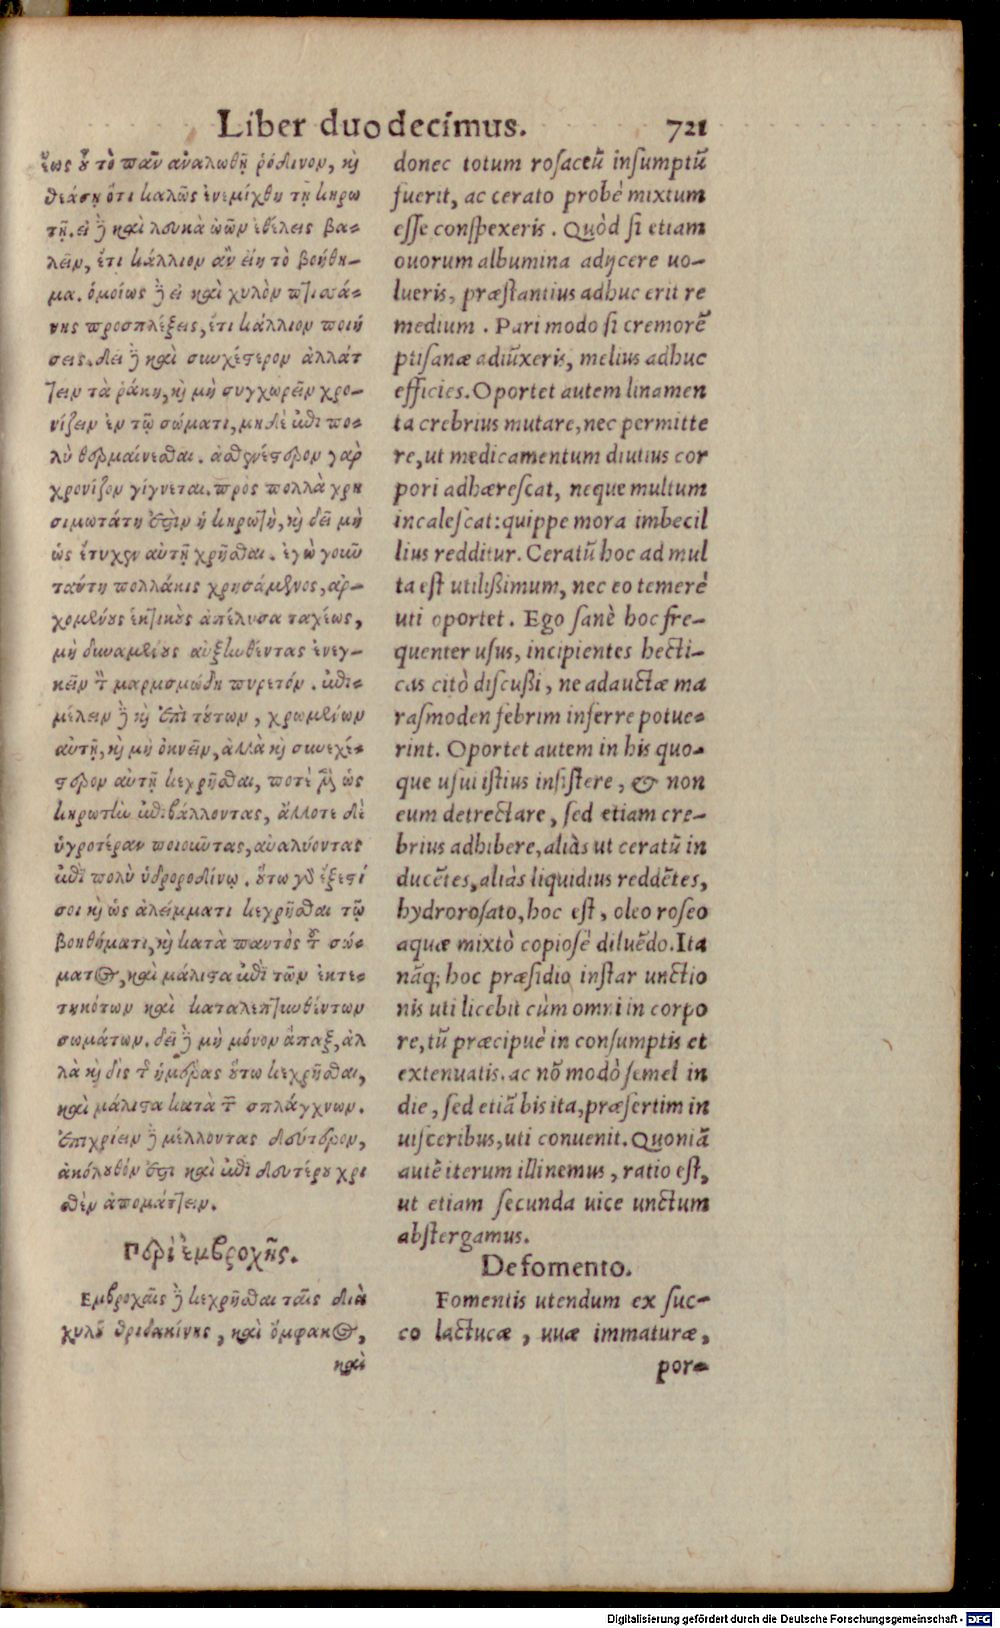 Liber duodecimus. 721
ἕως οὗ τὸ πᾶν ἀναλωθῇ ῥόδινον, καὶ
θεάσῃ ὅτι καλῶς ἐνεμίχθη τῇ κηρω
τῇ. εἰ δὲ καὶ λευκὰ ὠῶν ἐθέλεις βα-
λεῖν, ἔτι κάλλιον ἂν εἴη τὸ βοήθη-
μα. ὁμοίως δὲ εἰ καὶ χυλὸν πτισά-
νης προσπλέξεις, ἔτι κάλλιον ποιή
σεις. δεῖ δὲ καὶ συνχέστερον ἀλλάτ
τειν τὰ ῥάκη, καὶ μὴ συγχωρεῖν χρο-
νίζειν ἐν τῷ σώματι, μηδὲ ἐπὶ πο-
λὺ θερμαίνεσθαι. ἀσθενέστερον γὰρ
χρονίζον γίγνεται. πρὸς πολλὰ χρη
σιμωτάτη ἐστὶν ἡ κηρωτὴ, καὶ δεῖ μὴ
ὡς ἔτυχεν αὐτῇ χρῆσθαι. ἐγὼ γοῦν
ταύτῃ πολλάκις χρησάμενος, ἀρ-
χομένους ἑκτικοὺς ἀπέλυσα ταχέως,
μὴ δυναμένους αὐξηθέντας ἐνεγ-
κεῖν τὸν μαρασμώδη πυρετόν. ἐπι-
μέλειν δὲ καὶ ἐπὶ τούτων, χρωμένων
αὐτῇ, καὶ μὴ ὀκνεῖν, ἀλλὰ καὶ συνεχέ-
στερον αὐτῇ κεχρῆσθαι, ποτὲ μὲν ὡς
κηρωτὴν ἐπιβάλλοντας, ἄλλοτε δὲ
ὑγροτέραν ποιοῦντας, ἀναλύοντας
ἐπὶ πολὺ ὑδροροδίνῳ. οὕτω γὰρ ἔξεστί
σοι καὶ ὡς ἀλείμματι κεχρῆσθαι τῷ
βοηθήματι, καὶ κατὰ παντὸς τοῦ σώ-
ματος, καὶ μάλιστα ἐπὶ τῶν ἐκτε-
τηκότων καὶ καταλεπτυνθέντων
σωμάτων. δεῖ δὲ μὴ μόνον ἅπαξ, ἀλ
λὰ καὶ δὶς τῆς ἡμέρας οὕτω κεχρῆσθαι,
καὶ μάλιστα κατὰ τῶν σπλάγχνων.
ἐπιχρίειν δὲ μέλλοντας δεύτερον,
ἀκόλουθόν ἐστι καὶ ἐπὶ δευτέρου χρι
σθὲν ἀπομάττειν.
Περὶ ἐμβροχῆς.
Εμβροχαῖς δὲ κεχρῆσθαι ταῖς διὰ
χυλοῦ θριδακίνης, καὶ ὄμφακος,
καὶ
donec totum rosaceũ insumptũ
fuerit, ac cerato probè mixtum
esse conspexeris. Quòd si etiam
ouorum albumina adijcere uo-
lueris, præstantius adhuc erit re
medium. Pari modo si cremorẽ
ptisanæ adiũxeris, melius adhuc
efficies. Oportet autem linamen
ta crebrius mutare, nec permitte
re, ut medicamentum diutius cor
pori adhærescat, neque multum
incalescat: quippe mora imbecil
lius redditur. Ceratũ hoc ad mul
ta est utilißimum, nec eo temerè
uti oportet. Ego sanè hoc fre-
quenter usus, incipientes hecti-
cas citò discußi, ne adauctæ ma
rasmoden febrim inferre potue-
rint. Oportet autem in his quo-
que usui istius insistere, & non
eum detrectare, sed etiam cre-
brius adhibere, aliàs ut ceratũ in
ducẽtes, aliàs liquidius reddẽtes,
hydrorosato, hoc est, oleo roseo
aquæ mixtò copiosè diluẽdo. Ita
nãq; hoc præsidio instar unctio
nis uti licebit cùm omni in corpo
re, tũ præcipuè in consumptis et
extenuatis. ac nõ modò semel in
die, sed etiã bis ita, præsertim in
uisceribus, uti conuenit. Quoniã
autẽ iterum illinemus, ratio est,
ut etiam secunda uice unctum
abstergamus.
De fomento.
Fomentis utendum ex suc-
co lactucæ, uuæ immaturæ,
por-
Digitalisierung gefördert durch die Deutsche Forschungsgemeinschaft - DFG